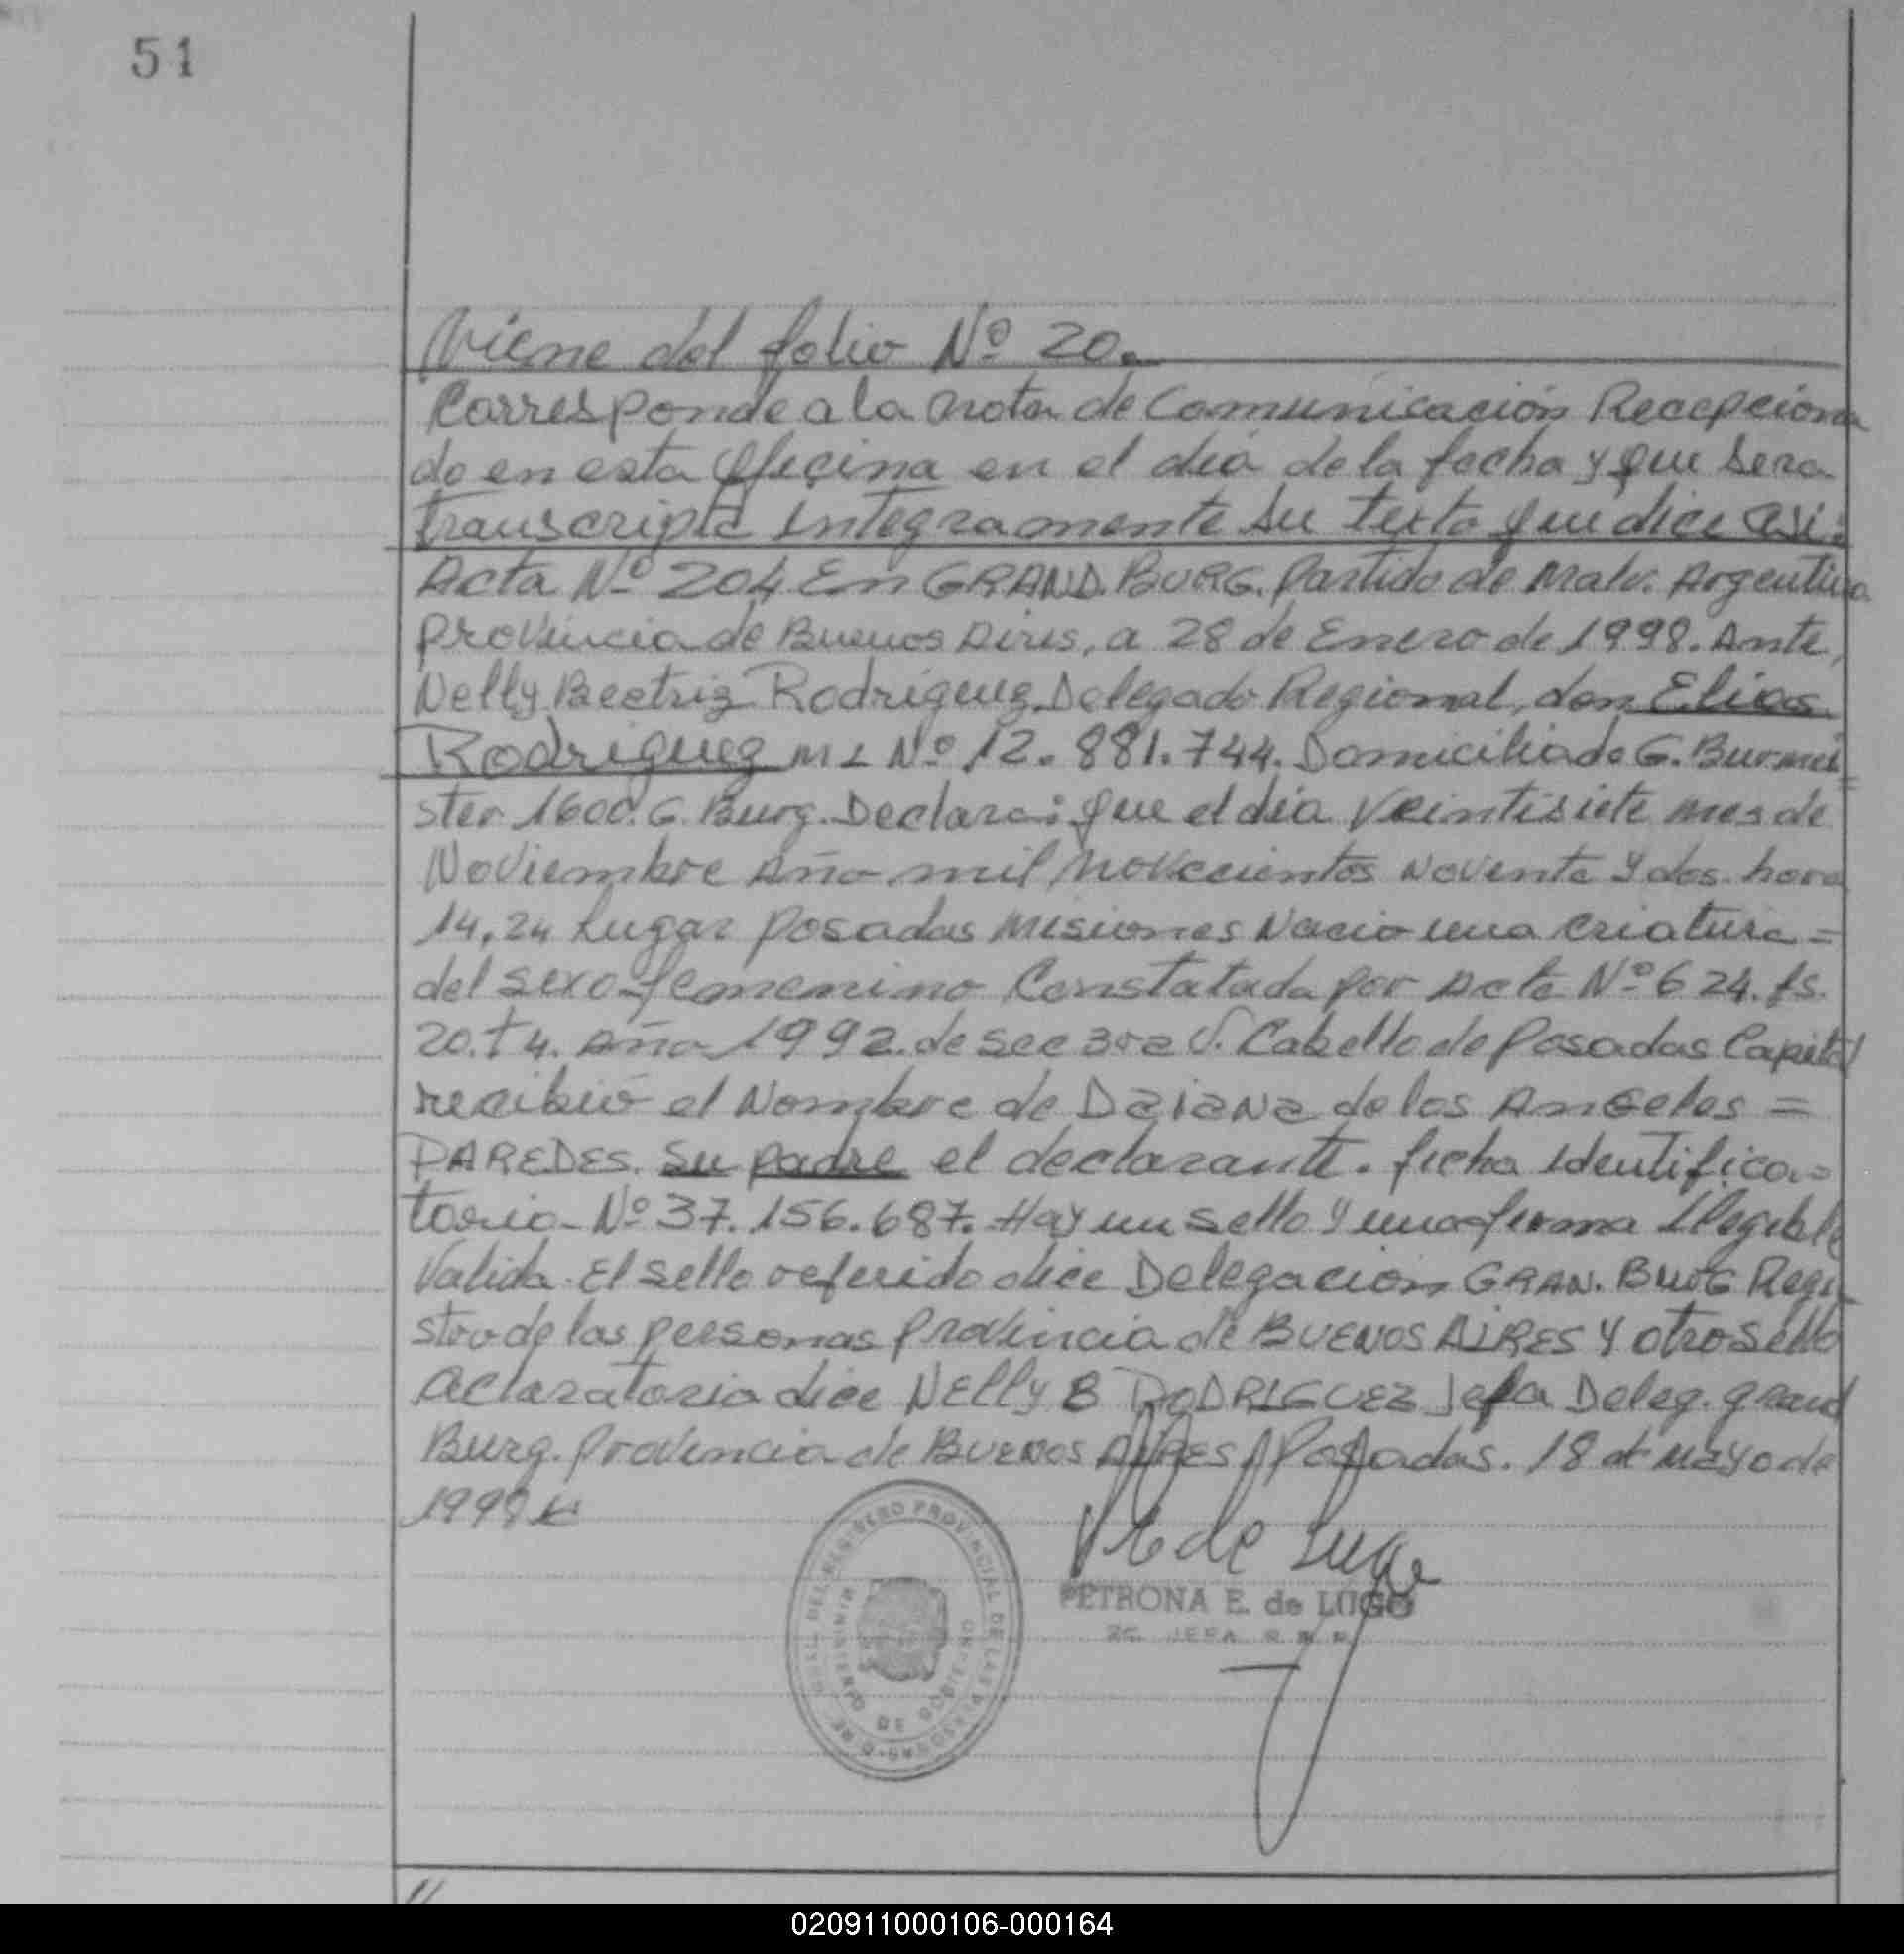 51
Viene del folio Nº 20.
Corresponde a la nota de Comunicación Recepciona
do en esta Oficina en el dia de la fecha y que sera
transcripta integramente su texto que dice asi:
Acta Nº 204 En GRAND. BURG. Partido de Malv. Argentina
Provincia de Buenos Aires, a 28 de Enero de 1998. Ante,
Nelly Beatriz Rodriguez Delegado Regional, don Elias
Rodriguez M I Nº 12.881.744. Domiciliado G. Burmei=
ster 1600. G. Burg. Declara: que el dia Veintisiete mes de
Noviembre Año mil novecientos noventa y dos. hora
14,24 Lugar Posadas Misiones Nacio una criatura =
del sexo femenino Constatada por Acta Nº 624. fs.
20. T 4. Año 1992. de Sec 3ra V. Cabello de Posadas Capital
recibió el Nombre de Daiana de los Angeles =
PAREDES. Su padre el declarante. ficha identifica=
toria Nº 37.156.687. Hay un sello y una firma Ilegible
Valida. El sello referido dice Delegación GRAN. BURG Regi-
stro de las personas Provincia de BUENOS AIRES y otro sello
aclaratorio dice NElly B RODRIGUEZ Jefa Deleg. grand
Burg. Provincia de BUENOS AIRES Posadas. 18 de Mayo de
1998
PETRONA E. de LUGO
GRAL. DEL REGISTRO PROVINCIAL DE LAS PERSONAS
MINISTERIO DE GOBIERNO
020911000106-000164